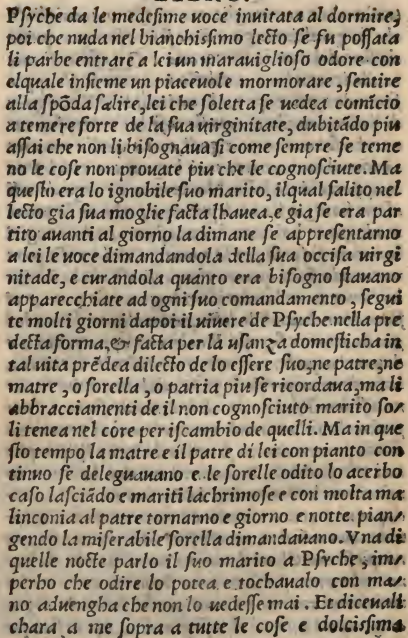 Psyche da le medesime uoce inuitata al dormire,
poi che nuda nel bianchissimo lecto se fu possata
li parbe entrare a lei un marauiglioso odore con
elquale insieme un piaceuole mormorare, sentire
alla spōda salire, lei che soletta se uedea comīcio
a temere forte de la sua uirginitate, dubitādo piu
assai che non li bisognaua si come sempre se teme
no le cose non prouate piu che le cognosciute. Ma
questo era lo ignobile suo marito, ilqual salito nel
lecto gia sua moglie facta lhauea, e gia se era par
tito auanti al giorno la dimane se appresentarno
a lei le uoce dimandandola della sua occisa uirgi
nitade, e curandola quanto era bisogno stauano
apparecchiate ad ogni suo comandamento, segui
te molti giorni dapoi il uiuere de Psyche nella pre
decta forma, & facta per la usanza domesticha in
tal uita prēdea dilecto de lo essere suo, ne patre, ne
matre, o sorella, o patria piu se ricordaua, ma li
abbracciamenti de il non cognosciuto marito so/
li tenea nel core per iscambio de quelli. Ma in que
sto tempo la matre e il patre di lei con pianto con
tinuo se deleguauano e le sorelle odito lo acerbo
caso lasciādo e mariti lachrimose e con molta ma
linconia al patre tornarno e giorno e notte pian/
gendo la miserabile sorella dimandauano. Vna di
quelle nocte parlo il suo marito a Psyche, im/
perho che odire lo potea e tochaualo con ma/
no aduengha che non lo uedesse mai. Et diceuali
chara a me sopra a tutte le cose e dolcissima